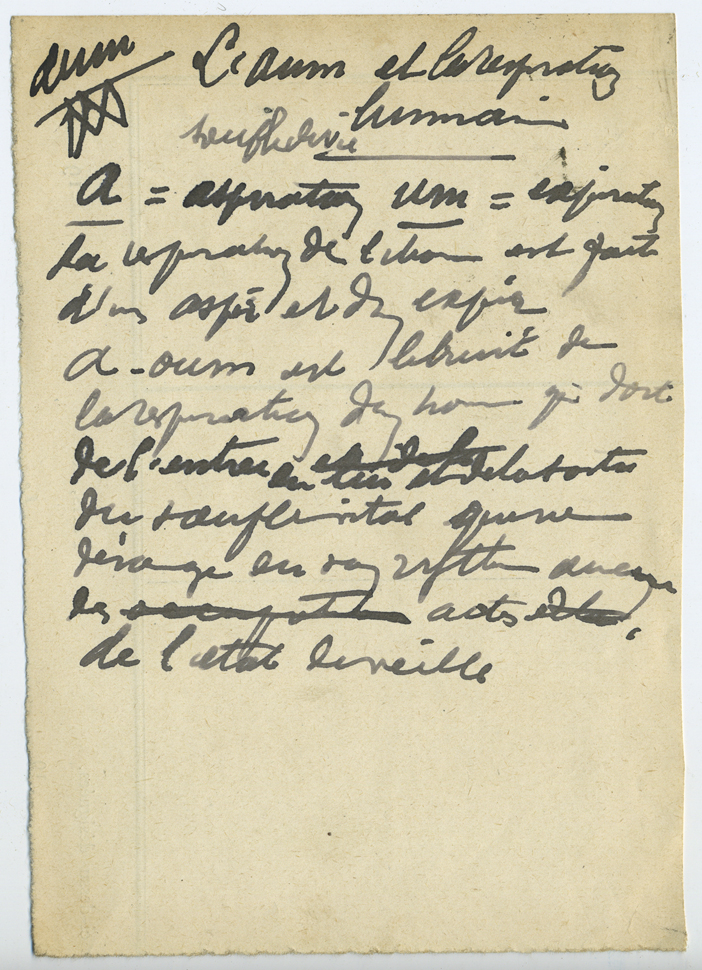 aum
L'aum et la respiration
humain
souffle divin
A = aspiration um = expiration
La respiration de l'homme est faite
d'un aspir et d'un expir
a-oum est le bruit de
la respiration d'un homme qui dort
de l'entrée en lui et de la sortie
du souffle vital que ne
dérange en son rythme aucun
des occupations actes
de l'état de veille